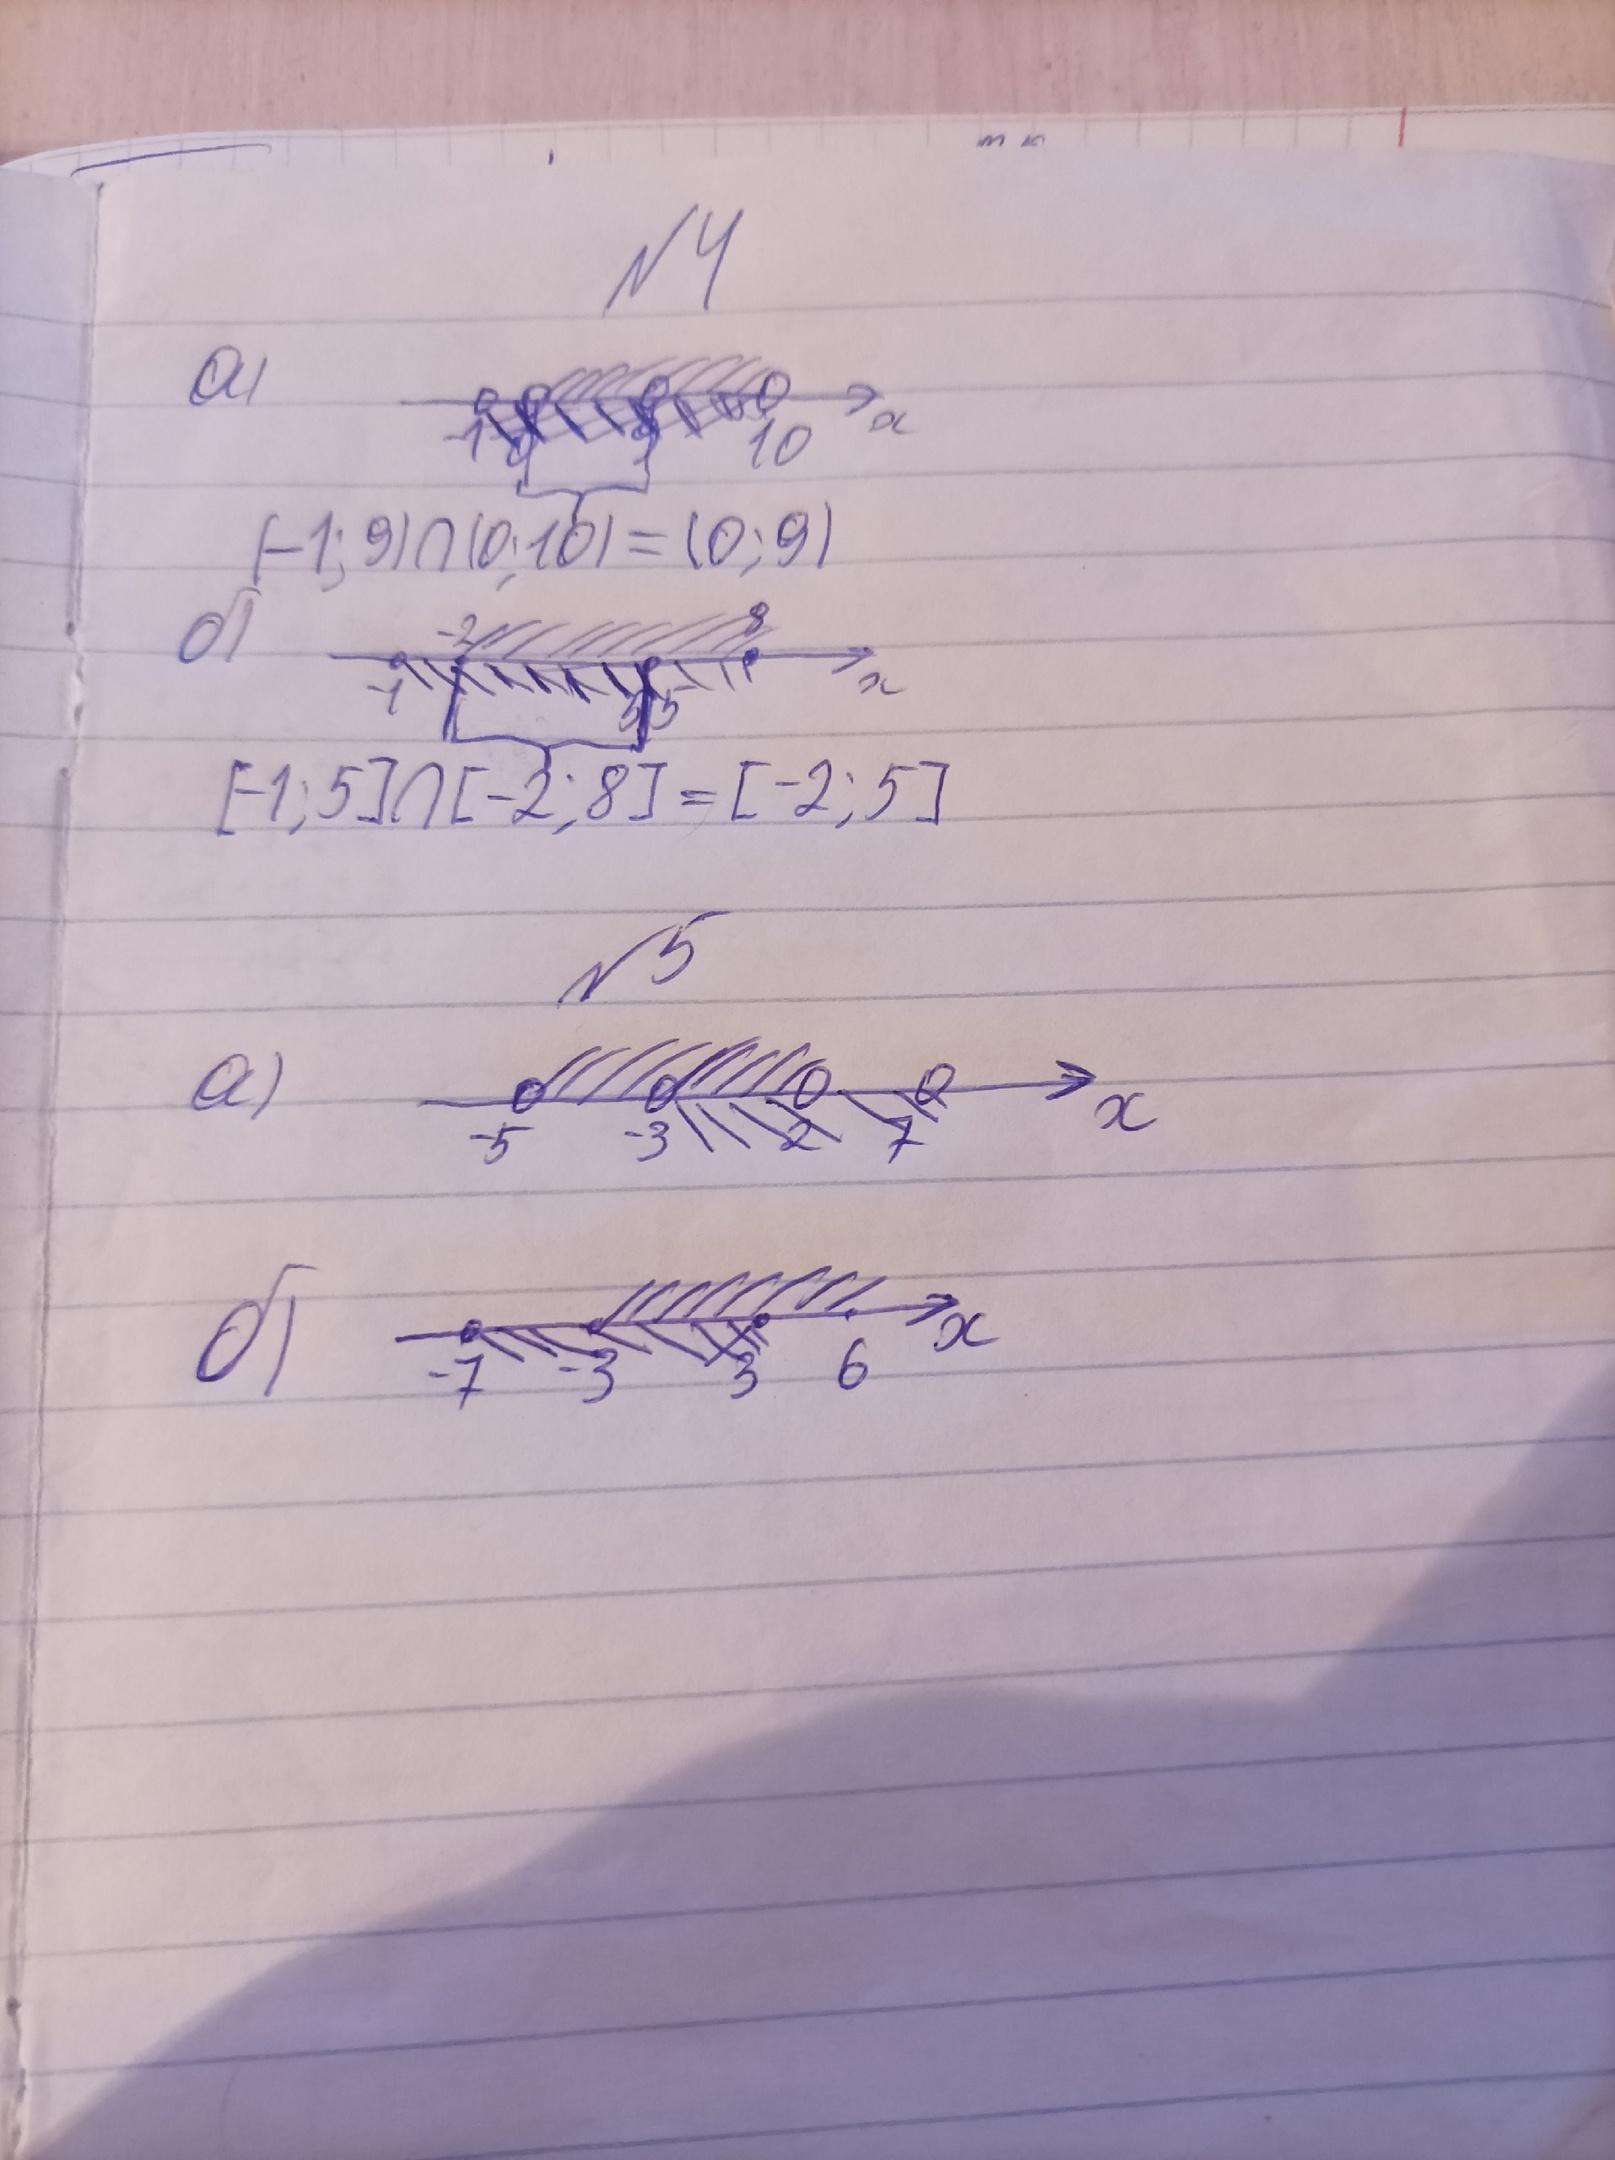 №4
а)
-1 0 9 10 x
(-1; 9)∩(0; 10) = (0; 9)
б) -2 8
-1 5 x
[-1; 5]∩[-2; 8] = [-2; 5]
№5
а) -5 -3 2 7 x
б) -7 -3 3 6 x